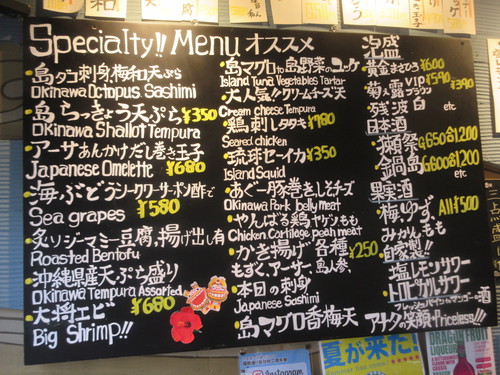 Specialty!! Menu オススメ
島タコ刺身梅和天ぷら
Okinawa Octopus Sashimi
島らっきょう天ぷら ¥350
Okinawa Shallot Tempura
アーサあんかけだし巻き玉子
Japanese Omelette ¥680
海ぶどうシークワーサーポン酢で
Sea grapes ¥580
炙りジーマミー豆腐、揚げ出し有
Roasted Bentofu
沖縄県産天ぷら盛り
Okinawa Tempura Assorted ¥680
大将エビ
Big Shrimp!!
島マグロと島野菜のユッケ
Island Tuna Vegetables Tartar
大人気!!クリームチーズ天
Cream cheese Tempura
鶏刺しタタキ ¥780
Seared chicken
琉球セーイカ ¥350
Island Squid
あぐー豚巻きしそチーズ
Okinawa Pork belly meat
やんばる鶏ヤゲンもも
Chicken Cartilage peah meat
かき揚げ各種 ¥250
もずく、アーサー、島人参、
本日の刺身
Japanese Sashimi
島マグロ香梅天
泡盛
黄金まさひろ ¥600
菊之露VIP ¥590
ブラウン ¥390
残波 白 etc
日本酒
獺祭 G650 合1200
鍋島 G600 合1200
果実酒
梅、ゆず、 All ¥500
みかん、もも etc
自家製!!
塩レモンサワー
トロピカルサワー
フレッシュパインorマンゴー酒
アナタの笑顔・Priceless!!!
夏が来た!
DRAGON FRUIT